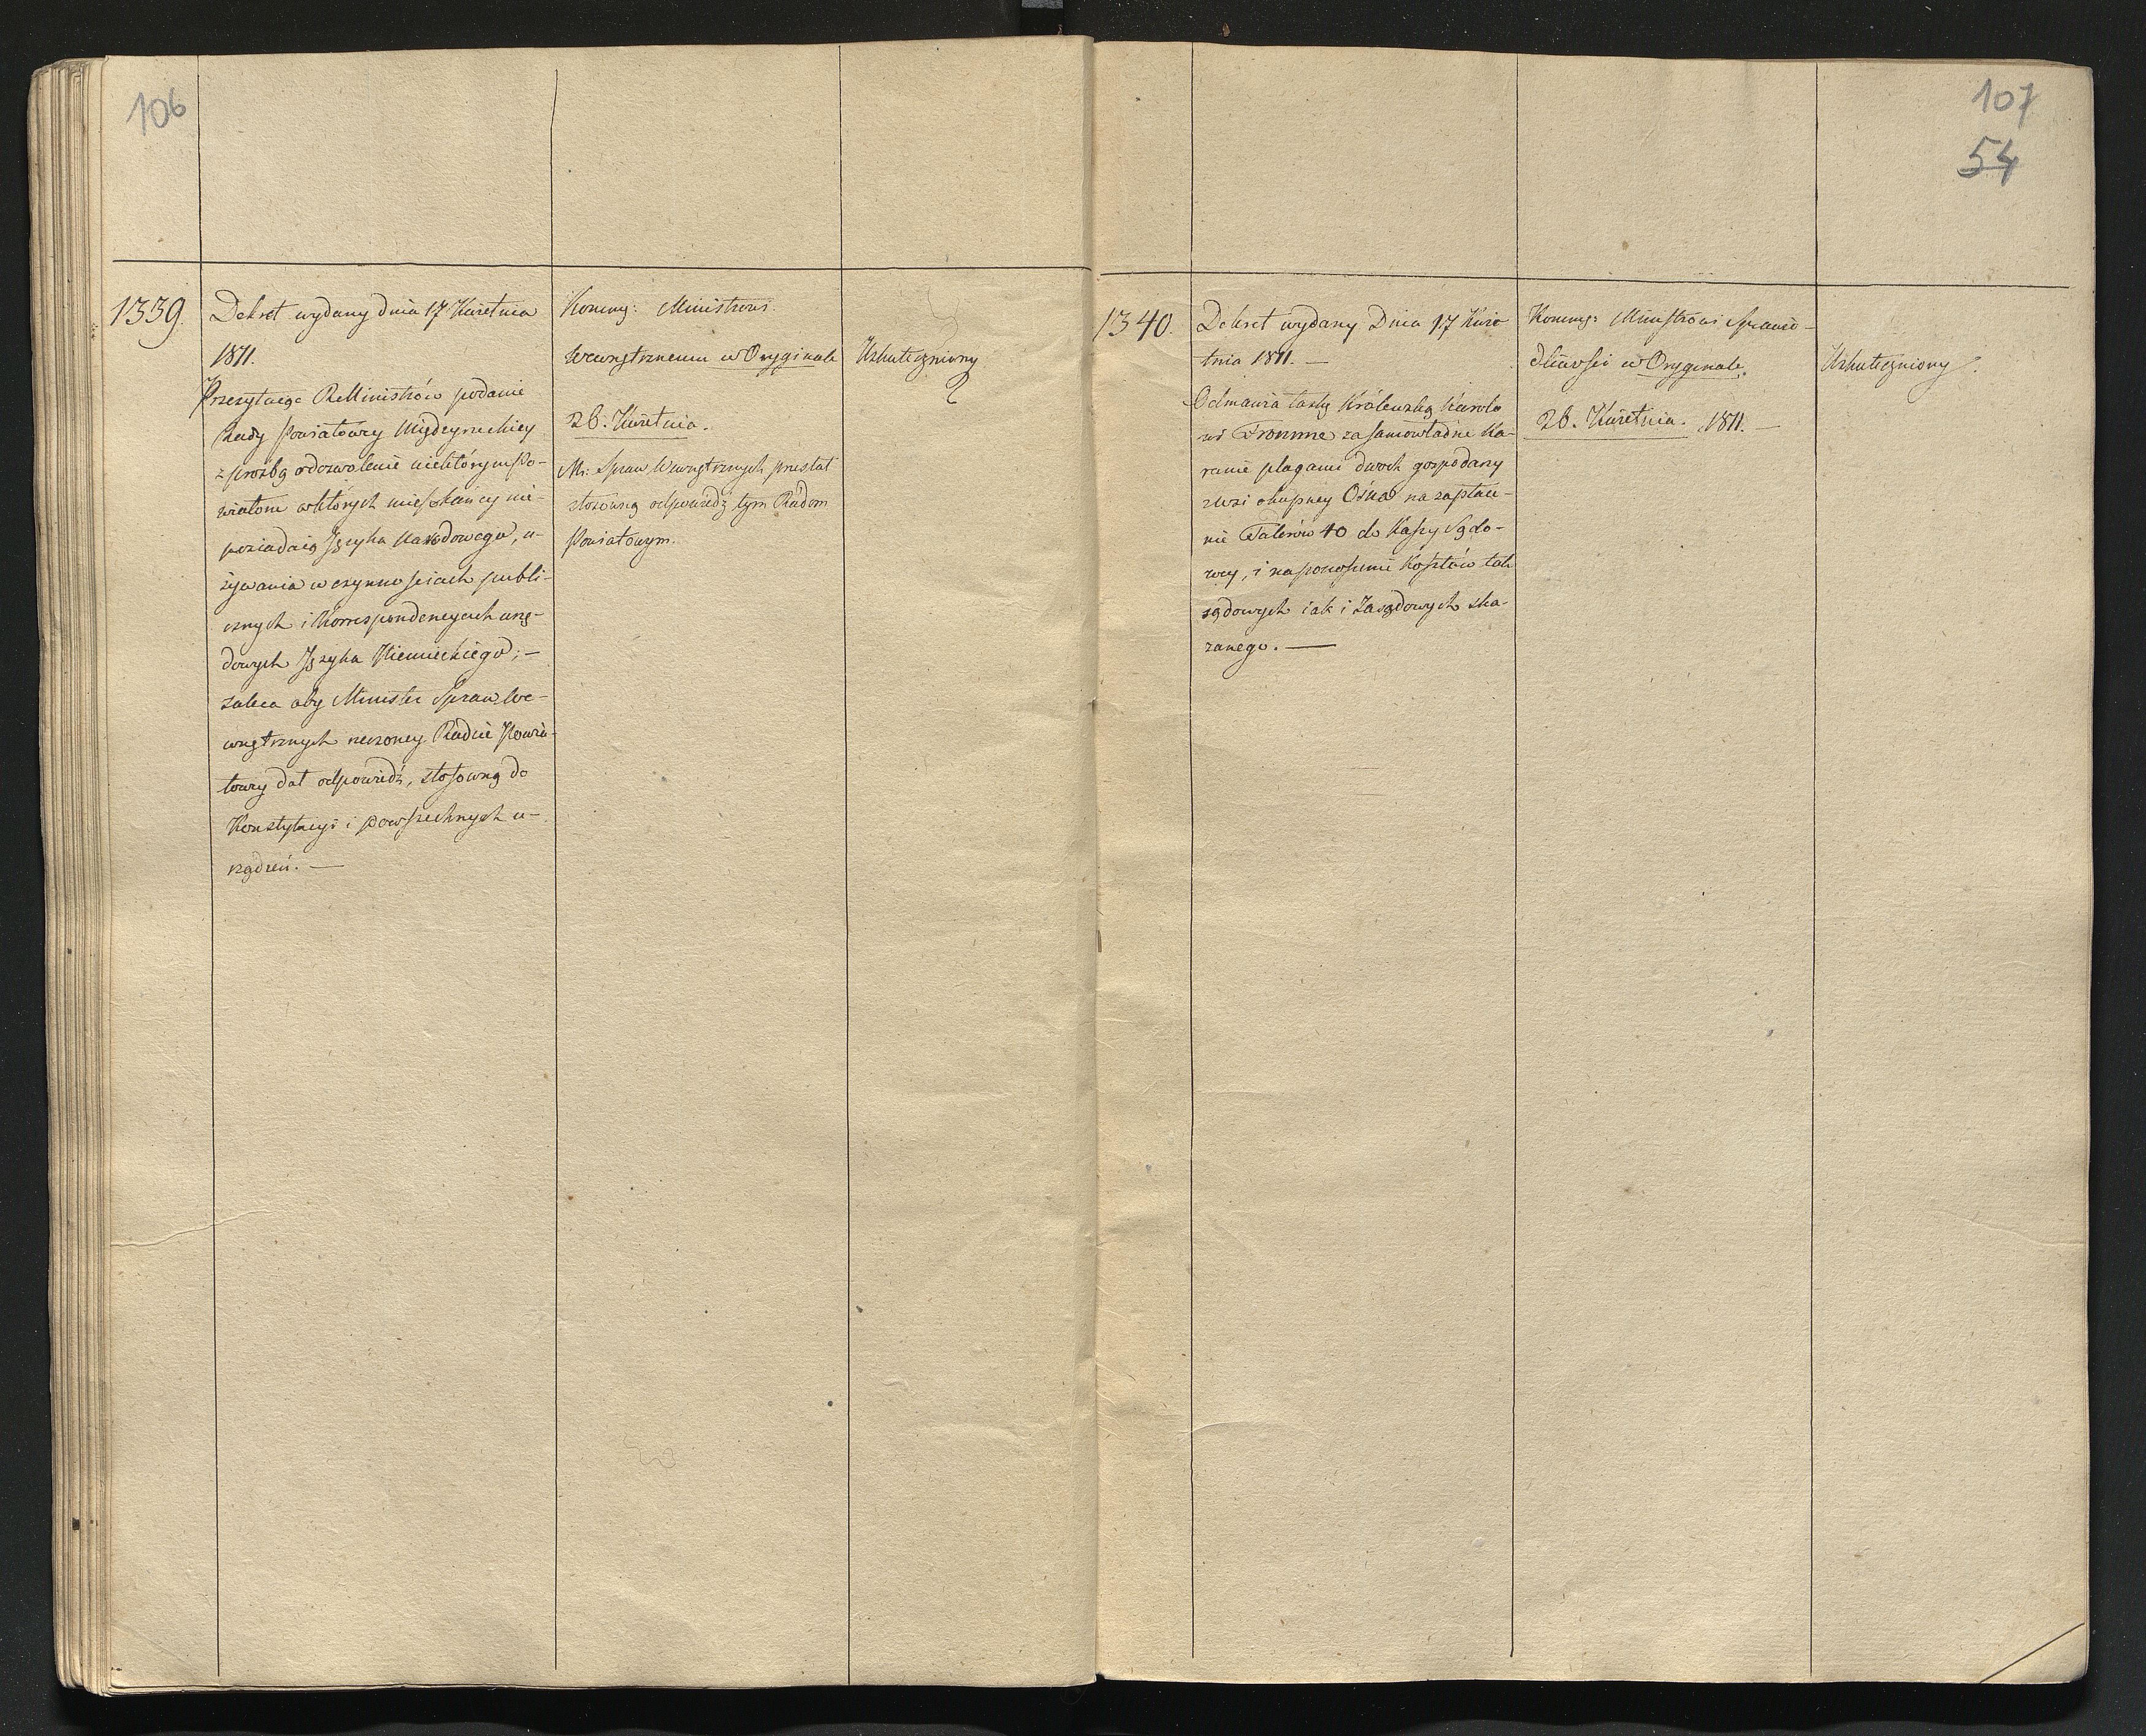 106
1339.
Dekret wydany dnia 17 Kwietnia
1811.
Przesyłając R. Ministrów podanie
Rady Powiatowey Międzyrzeckiey
z prozbą o dozwolenie niektórym Po-
wiatom w których mieszkańcy nie-
posiadaią Języka Narodowego, u-
żywania w czynnościach publi-
cznych i Korrespondencyach urzę-
dowych Języka Niemieckiego; —
zaleca aby Minister Spraw We-
wnętrznych rzeczoney Radzie Powia-
towey dał odpowiedź, stosowną do
Konstytucyi i powszechnych u-
rządzeń. —
Kommu: Ministrowi
Wewnętrznemu w Oryginale
26. Kwietnia.
Mr. Spraw Wewnętrznych przesłał
stosowną odpowiedź tym Radom
Powiatowym.
Uskuteczniony
107
54
1340.
Dekret wydany Dnia 17 Kwie
tnia 1811. —
Odmawia łaskę Królewską Karolo
wi Fromme za samowładne ka-
ranie plagami dwóch gospodarzy
z wsi okupney Ośna na zapłace-
nie Talerów 40 do Kassy Sądo-
wey, i na ponoszenie Kosztów tak
sądowych iak i Zasądowych ska-
zanego. —
Kommu: Ministrowi Sprawie-
dliwości w Oryginale.
26. Kwietnia. 1811. —
Uskuteczniony.